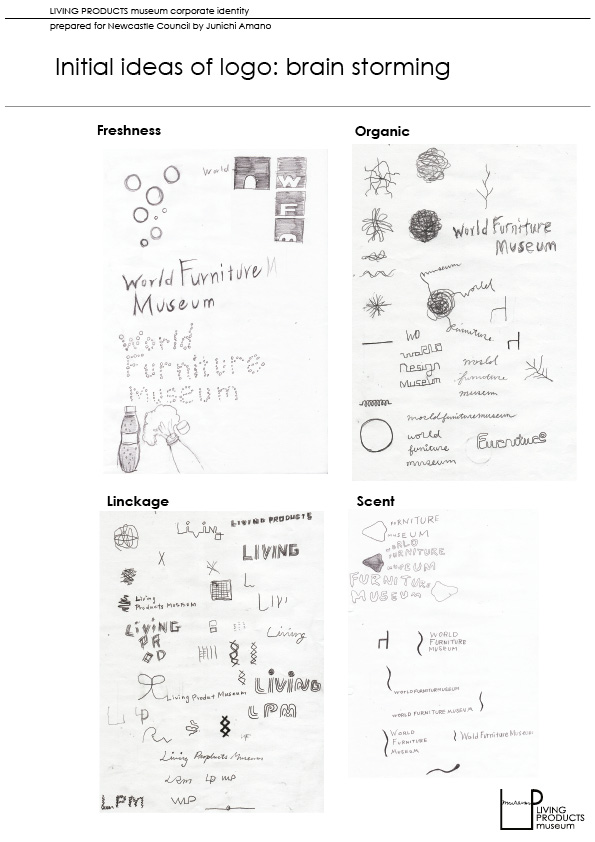 LIVING PRODUCTS museum corporate identity
prepared for Newcastle Council by Junichi Amano
Initial ideas of logo: brain storming
Freshness
World
W
F
M
World Furniture M
Museum
World
Furniture
Museum
Organic
World Furniture
Museum
museum
world
furniture
WO
world
Design
Museum
world
furniture
museum
worldfurnituremuseum
world
furniture
museum
Furniture
Linckage
Living
LIVING PRODUCTS
LIVING
L
LIVI
Living
Products Museum
LIVING
PR
OD
Living
Living Produt Museum
LIVING
LPM
LP
Living Products Museum
LPM
LP MP
LPM
WLP
Scent
FURNITURE
MUSEUM
WORLD
FURNITURE
MUSEUM
FURNITURE
MUSEUM
WORLD
FURNITURE
MUSEUM
WORLDFURNITURMUSEUM
WORLD FURNITURE MUSEUM
WORLD
FURNITURE
MUSEUM
World Furniture Museum
museum
LIVING
PRODUCTS
museum